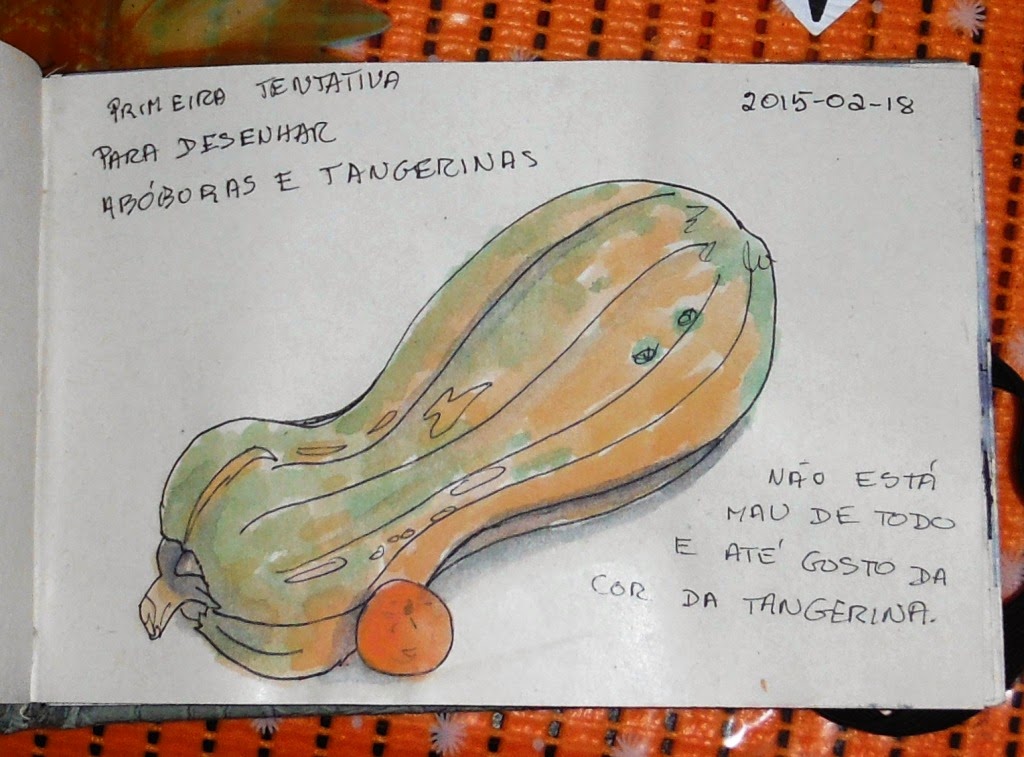 PRIMEIRA TENTATIVA
PARA DESENHAR
ABÓBORAS E TANGERINAS
2015-02-18
NÃO ESTÁ
MAU DE TODO
E ATÉ GOSTO DA
COR DA TANGERINA.